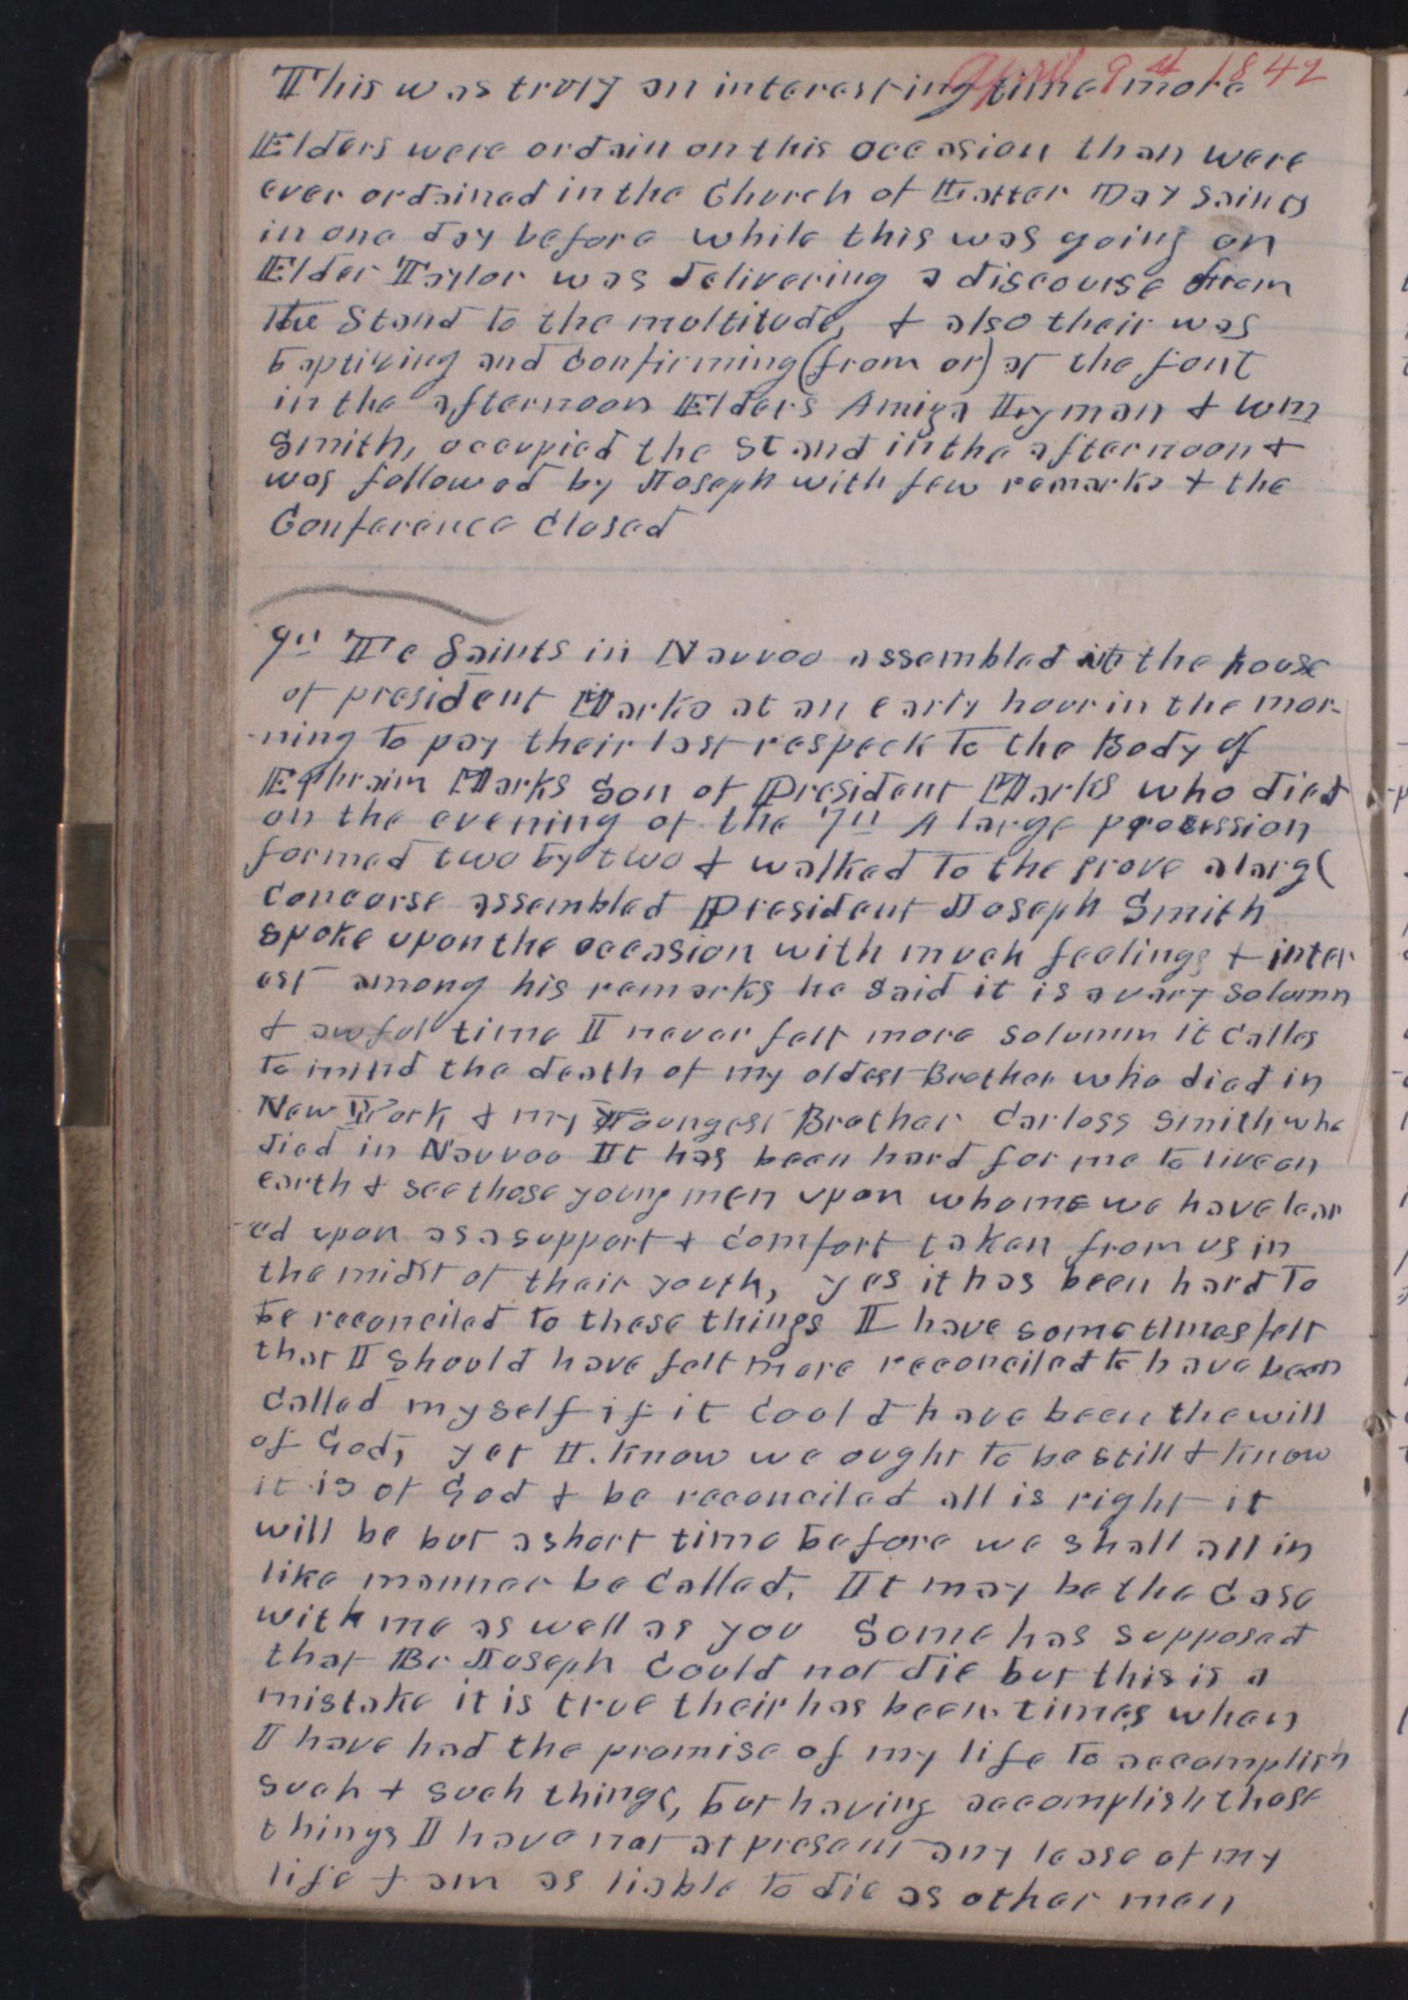 April 9th 1842
This was truly an interesting time more
Elders were ordain on this occasion than were
ever ordained in the Church of Latter Day Saints
in one day before while this was going on
Elder Taylor was delivering a discourse from
the Stand to the multitude, & also their was
baptizing and Confirming (from or) at the font
in the afternoon Elders Amiza Lyman & Wm
Smith, occupied the Stand in the afternoon &
was followed by Joseph with few remarks & the
Conference Closed
9th The Saints in Nauvoo assembled at the house
of president Marks at an early hour in the mor-
-ning to pay their last respeck to the Body of
Ephraim Marks Son of President Marks who died
on the evening of the 7th A large procession
formed two by two & walked to the grove a large
concorse assembled President Joseph Smith
spoke upon the occasion with much feelings & inter
est among his remarks he said it is a vary solumn
& awful time I never felt more solumn it calles
to mind the death of my oldest Brother who died in
New York & my Youngest Brother Carloss Smith who
died in Nauvoo It has been hard for me to live on
earth & see those young men upon whome we have lean
-ed upon as a support & comfort taken from us in
the midst of their youth, yes it has been hard to
be reconciled to these things I have sometimes felt
that I should have felt more reconciled to have been
called myself if it could have been the will
of God, yet I know we ought to be still & know
it is of God & be reconciled all is right it
will be but a short time before we shall all in
like manner be called. It may be the case
with me as well as you Some has supposed
that Br Joseph Could not die but this is a
mistake it is true their has been times when
I have had the promise of my life to accomplish
such & such things, but having accomplish those
things I have not at present any lease of my
life & am as liable to die as other men